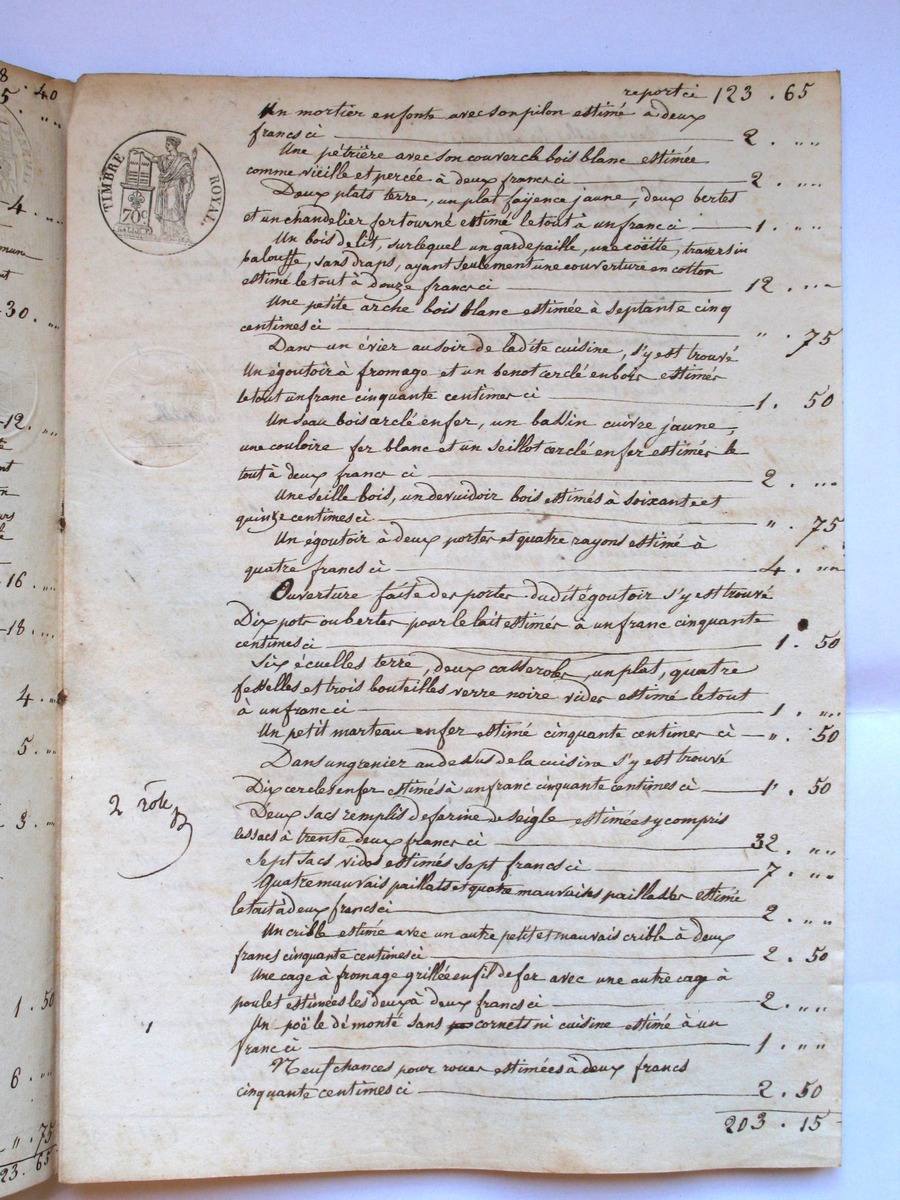 report ci 123 . 65
Un mortier en fonte avec son pilon estimé à deux
francs ci 2 . " "
Une pétrière avec son couvercle bois blanc estimée
comme vieille et percée à deux francs ci 2 . " "
Deux plats terre, un plat fayence jaune, deux bertes
et un chandelier fer tourné estimé le tout à un franc ci 1 . " "
Un bois de lit, sur lequel un gardepaille, une coëtte, traversin
palouffe, sans draps, ayant seulement une couverture en cotton
estimé le tout à douze francs ci 12 . " "
Une petite arche bois blanc estimée à septante cinq
centimes ci " . 75
Dans un évier au soir de ladite cuisine, s'y est trouvé
Un égoutoir à fromage et un benot cerclé en bois estimés
le tout un franc cinquante centimes ci 1 . 50
Un seau bois cerclé en fer, un bassin cuivre jaune,
une couloire fer blanc et un seillot cerclé en fer estimés le
tout à deux francs ci 2 . " "
Une seille bois, un devuidoir bois estimés à soixante et
quinze centimes ci " . 75
Un égoutoir à deux portes et quatre rayons estimé à
quatre francs ci 4 . " "
Ouverture faite des portes dudit égoutoir s'y est trouvé
Dix pots ou bertes pour le lait estimés à un franc cinquante
centimes ci 1 . 50
Six écuelles terre, deux casseroles, un plat, quatre
fesselles et trois bouteilles verre noire vides estimé le tout
à un franc ci 1 . " "
Un petit marteau en fer estimé cinquante centimes ci " . 50
Dans un grenier au dessus de la cuisine s'y est trouvé
Dix cercles en fer estimés à un franc cinquante centimes ci 1 . 50
Deux sacs remplis de farine de seigle estimées y compris
les sacs à trente deux francs ci 32 . " "
Sept sacs vides estimés sept francs ci 7 . " "
Quatre mauvais paillats et quatre mauvaises paillasses estimé
le tout à deux francs ci 2 . " "
Un crible estimé avec un autre petit et mauvais crible à deux
francs cinquante centimes ci 2 . 50
Une cage à fromage grillée en fil de fer avec une autre cage à
poulet estimées les deux à deux francs ci 2 . " "
Un poële démonté sans cornets ni cuisine estimé à un
franc ci 1 . " "
Neuf chances pour roues estimées à deux francs
cinquante centimes ci 2 . 50
203 . 15
TIMBRE ROYAL.
70c
2 rôle
8
5 . 40
" "
4 . " "
30 . " "
12 . " "
16 . " "
18 . " "
4 . " "
5 . " "
3 . " "
1 . 50
6 . " "
" . 75
23 . 65